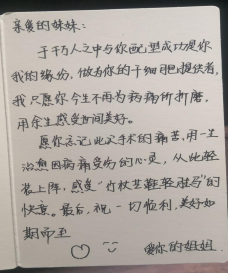 亲爱的妹妹：
于千万人之中与你配型成功是你
我的缘份，做为你的干细胞提供者，
我只愿你今生不再为病痛所折磨，
用余生感受世间美好。
愿你忘记此次手术的痛苦，用一生
治愈因病痛受伤的心灵，从此轻
装上阵，感受“竹杖芒鞋轻胜马”的
快意。最后，祝一切顺利，美好如
期而至
爱你的姐姐